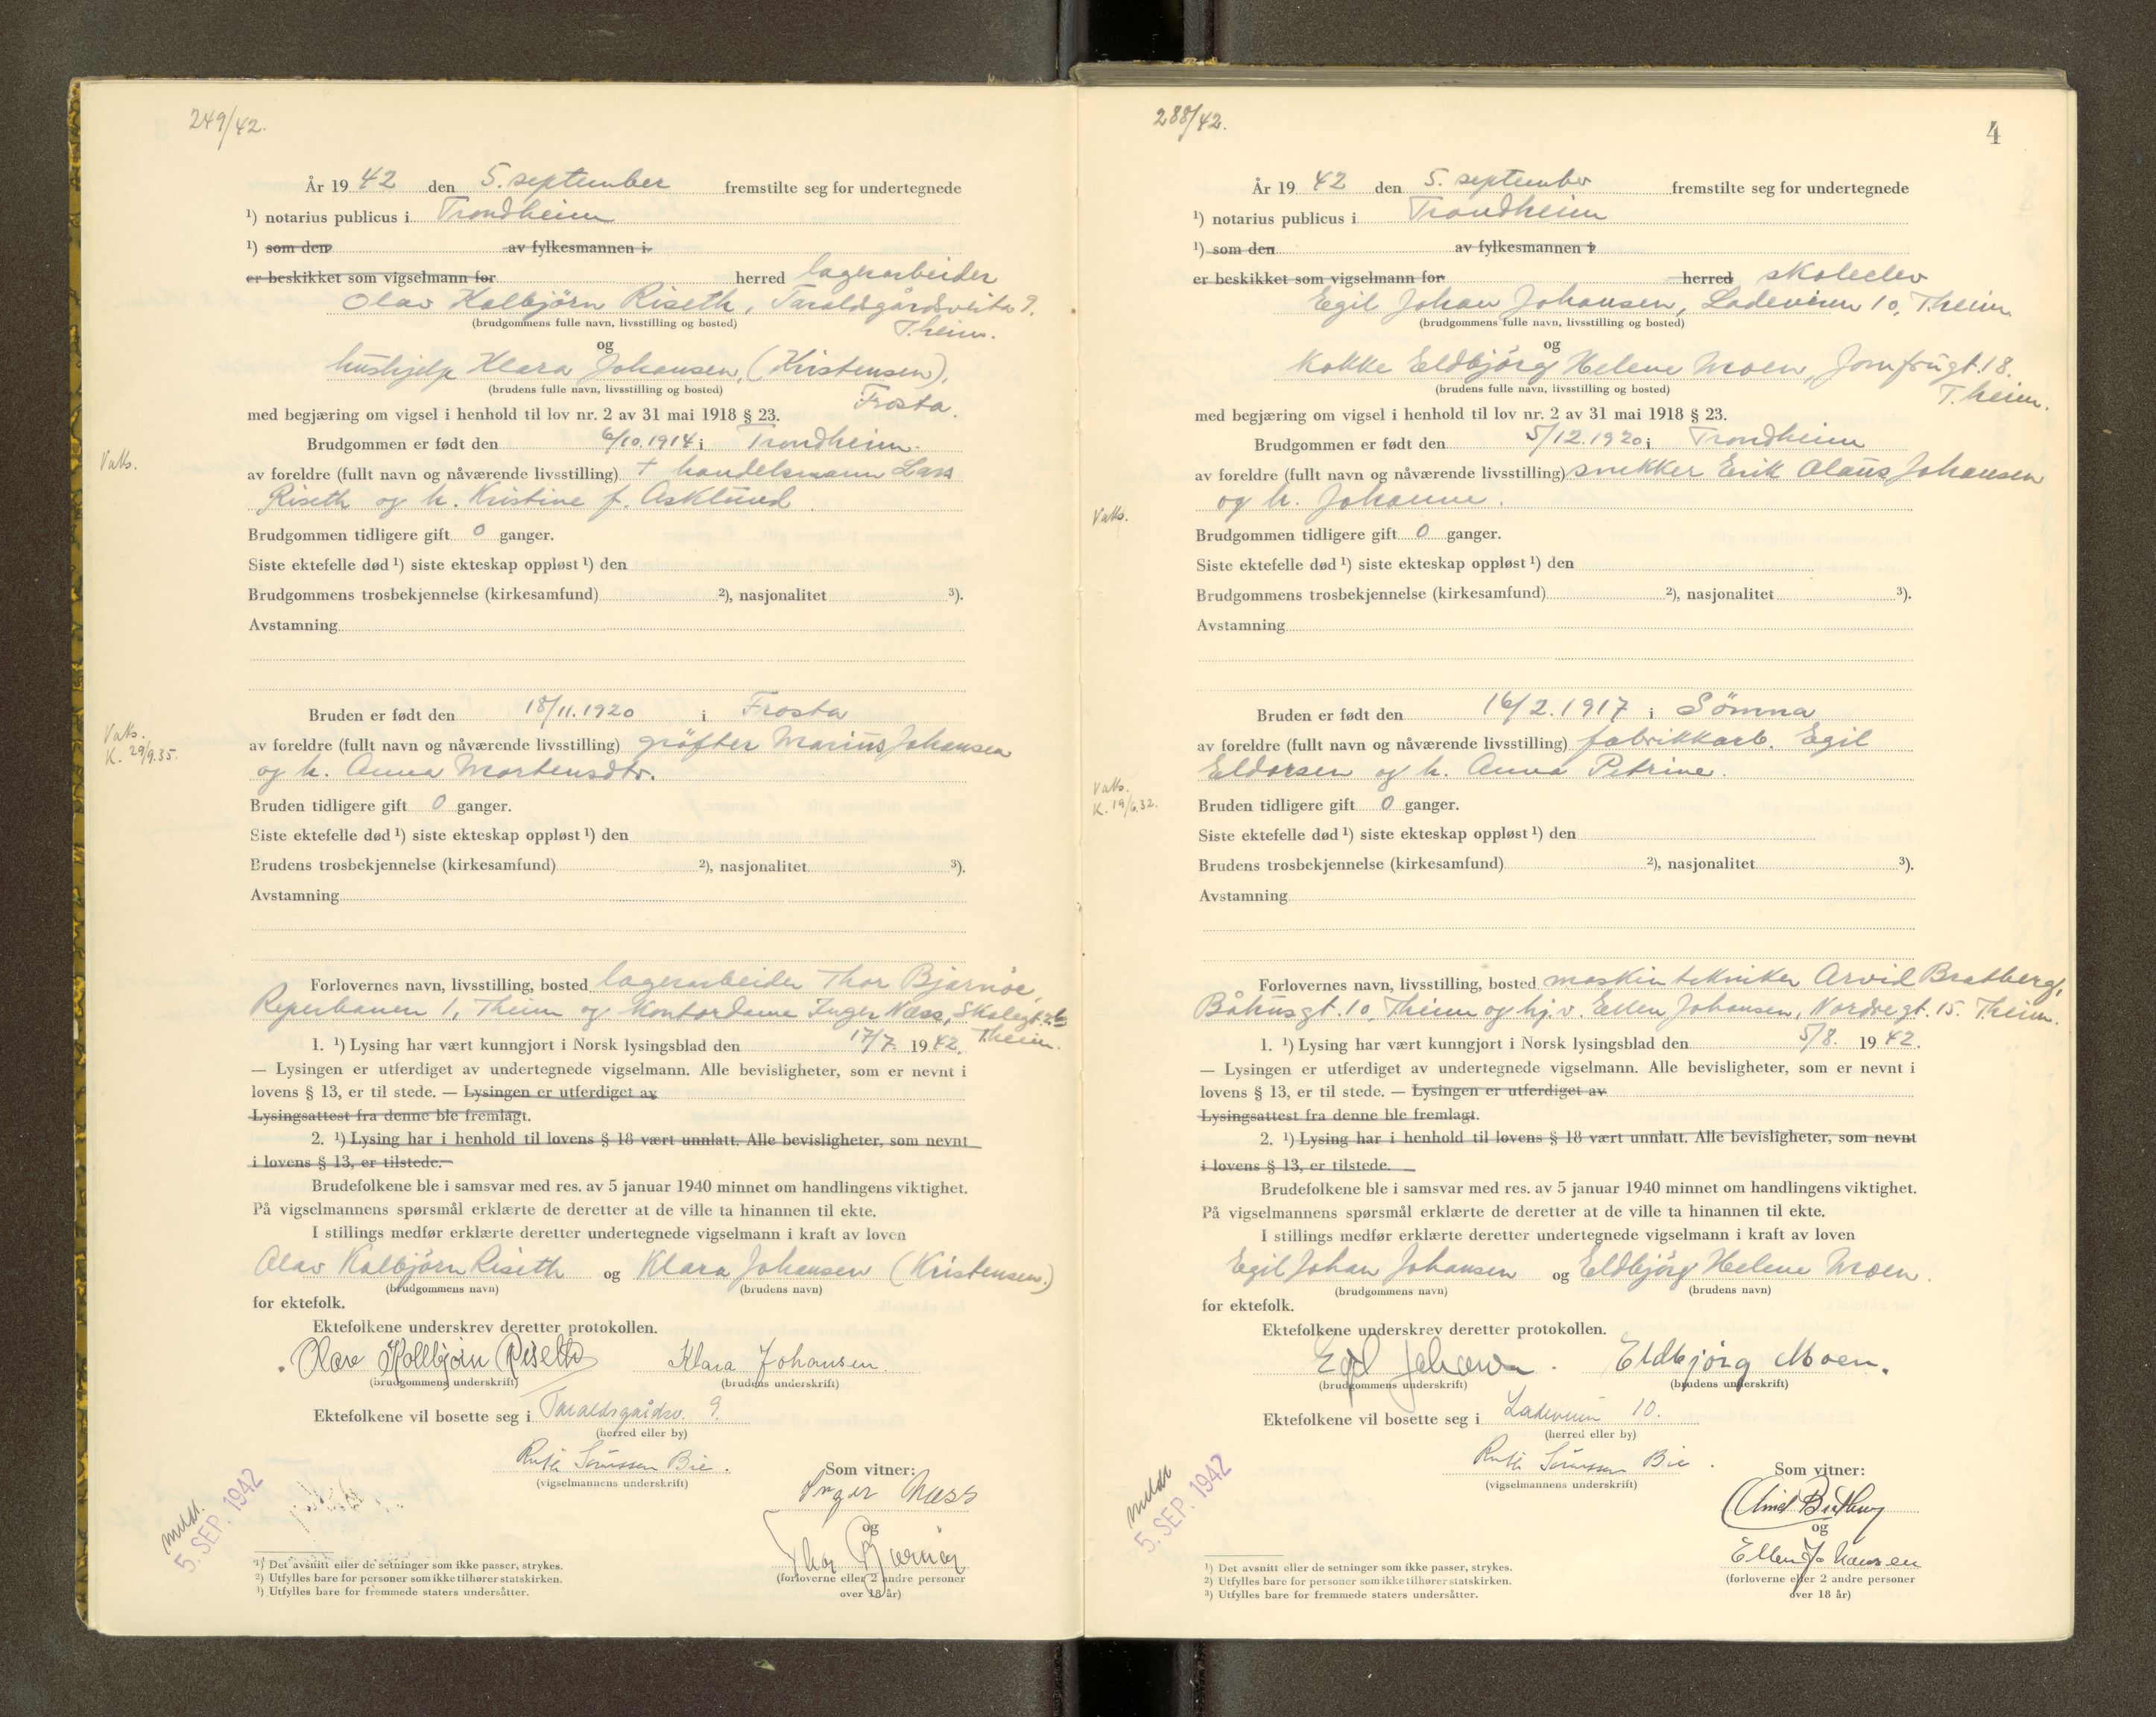 249/42.
År 19 42 den 5. september fremstilte seg for undertegnede
¹) notarius publicus i Trondheim
¹) som den av fylkesmannen i
er beskikket som vigselmann for herred lagerarbeider
Olav Kolbjörn Riseth, Taraldsgårdsveita 9.
(brudgommens fulle navn, livsstilling og bosted) T.heim.
og
hushjelp Klara Johansen, (Kristensen),
(brudens fulle navn, livsstilling og bosted) Frosta.
med begjæring om vigsel i henhold til lov nr. 2 av 31 mai 1918 § 23.
Brudgommen er født den 6/10.1914 i Trondheim.
Vatts.
av foreldre (fullt navn og nåværende livsstilling) + handelsmann Lars
Riseth og h. Kristine f. Asklund.
Brudgommen tidligere gift 0 ganger.
Siste ektefelle død ¹) siste ekteskap oppløst ¹) den
Brudgommens trosbekjennelse (kirkesamfund) ²), nasjonalitet ³).
Avstamning
Bruden er født den 18/11.1920 i Frosta
Vatts.
K. 29/9.35.
av foreldre (fullt navn og nåværende livsstilling) gröfter Marius Johansen
og h. Anna Mortensdtr.
Bruden tidligere gift 0 ganger.
Siste ektefelle død ¹) siste ekteskap oppløst ¹) den
Brudens trosbekjennelse (kirkesamfund) ²), nasjonalitet ³).
Avstamning
Forlovernes navn, livsstilling, bosted lagerarbeider Thor Bjarnöe,
Reperbanen 1, Theim og kontordame Inger Næss, Skolegt. 26
Theim.
1. ¹) Lysing har vært kunngjort i Norsk lysingsblad den 17/7. 19 42.
— Lysingen er utferdiget av undertegnede vigselmann. Alle bevisligheter, som er nevnt i
lovens § 13, er til stede. — Lysingen er utferdiget av
Lysingsattest fra denne ble fremlagt.
2. ¹) Lysing har i henhold til lovens § 18 vært unnlatt. Alle bevisligheter, som nevnt
i lovens § 13, er tilstede.—
Brudefolkene ble i samsvar med res. av 5 januar 1940 minnet om handlingens viktighet.
På vigselmannens spørsmål erklærte de deretter at de ville ta hinannen til ekte.
I stillings medfør erklærte deretter undertegnede vigselmann i kraft av loven
Olav Kolbjörn Riseth og Klara Johansen (Kristensen.)
(brudgommens navn) (brudens navn)
for ektefolk.
Ektefolkene underskrev deretter protokollen.
Olav Kollbjörn Riseth Klara Johansen.
(brudgommens underskrift) (brudens underskrift)
Ektefolkene vil bosette seg i Taraldsgaardsv. 9.
(herred eller by)
Ruth Sörnssen Bie.
(vigselmannens underskrift)
Som vitner:
Inger Næss
og
Thor Bjarnöe
(forloverne eller 2 andre personer
over 18 år)
meldt.
5. SEP. 1942
¹) Det avsnitt eller de setninger som ikke passer, strykes.
²) Utfylles bare for personer som ikke tilhører statskirken.
³) Utfylles bare for fremmede staters undersåtter.
288/42.
4
År 19 42 den 5. september fremstilte seg for undertegnede
¹) notarius publicus i Trondheim
¹) som den av fylkesmannen i
er beskikket som vigselmann for herred skoleelev
Egil Johan Johansen, Ladeveien 10, T.heim.
(brudgommens fulle navn, livsstilling og bosted)
og
kokke Eldbjörg Helene Moen, Jomfrugt. 18.
(brudens fulle navn, livsstilling og bosted) T.heim.
med begjæring om vigsel i henhold til lov nr. 2 av 31 mai 1918 § 23.
Brudgommen er født den 5/12.1920 i Trondheim
av foreldre (fullt navn og nåværende livsstilling) snekker Erik Olaus Johansen
og h. Johanne.
Vatts.
Brudgommen tidligere gift 0 ganger.
Siste ektefelle død ¹) siste ekteskap oppløst ¹) den
Brudgommens trosbekjennelse (kirkesamfund) ²), nasjonalitet ³).
Avstamning
Bruden er født den 16/2.1917 i Sömna
av foreldre (fullt navn og nåværende livsstilling) fabrikkarb. Egil
Eldorsen og h. Anna Petrine.
Vatts.
K. 19/6.32.
Bruden tidligere gift 0 ganger.
Siste ektefelle død ¹) siste ekteskap oppløst ¹) den
Brudens trosbekjennelse (kirkesamfund) ²), nasjonalitet ³).
Avstamning
Forlovernes navn, livsstilling, bosted maskintekniker Arvid Bratberg,
Båhusgt. 10, Theim og hj.v. Ellen Johansen, Nordregt. 15. Theim.
1. ¹) Lysing har vært kunngjort i Norsk lysingsblad den 5/8. 19 42.
— Lysingen er utferdiget av undertegnede vigselmann. Alle bevisligheter, som er nevnt i
lovens § 13, er til stede. — Lysingen er utferdiget av
Lysingsattest fra denne ble fremlagt.
2. ¹) Lysing har i henhold til lovens § 18 vært unnlatt. Alle bevisligheter, som nevnt
i lovens § 13, er tilstede.
Brudefolkene ble i samsvar med res. av 5 januar 1940 minnet om handlingens viktighet.
På vigselmannens spørsmål erklærte de deretter at de ville ta hinannen til ekte.
I stillings medfør erklærte deretter undertegnede vigselmann i kraft av loven
Egil Johan Johansen og Eldbjörg Helene Moen.
(brudgommens navn) (brudens navn)
for ektefolk.
Ektefolkene underskrev deretter protokollen.
Egil Johansen. Eldbjörg Moen.
(brudgommens underskrift) (brudens underskrift)
Ektefolkene vil bosette seg i Ladeveien 10.
(herred eller by)
Ruth Sörnssen Bie.
(vigselmannens underskrift)
Som vitner:
Arvid Bratberg
og
Ellen Johansen
(forloverne eller 2 andre personer
over 18 år)
meldt
5. SEP. 1942
¹) Det avsnitt eller de setninger som ikke passer, strykes.
²) Utfylles bare for personer som ikke tilhører statskirken.
³) Utfylles bare for fremmede staters undersåtter.